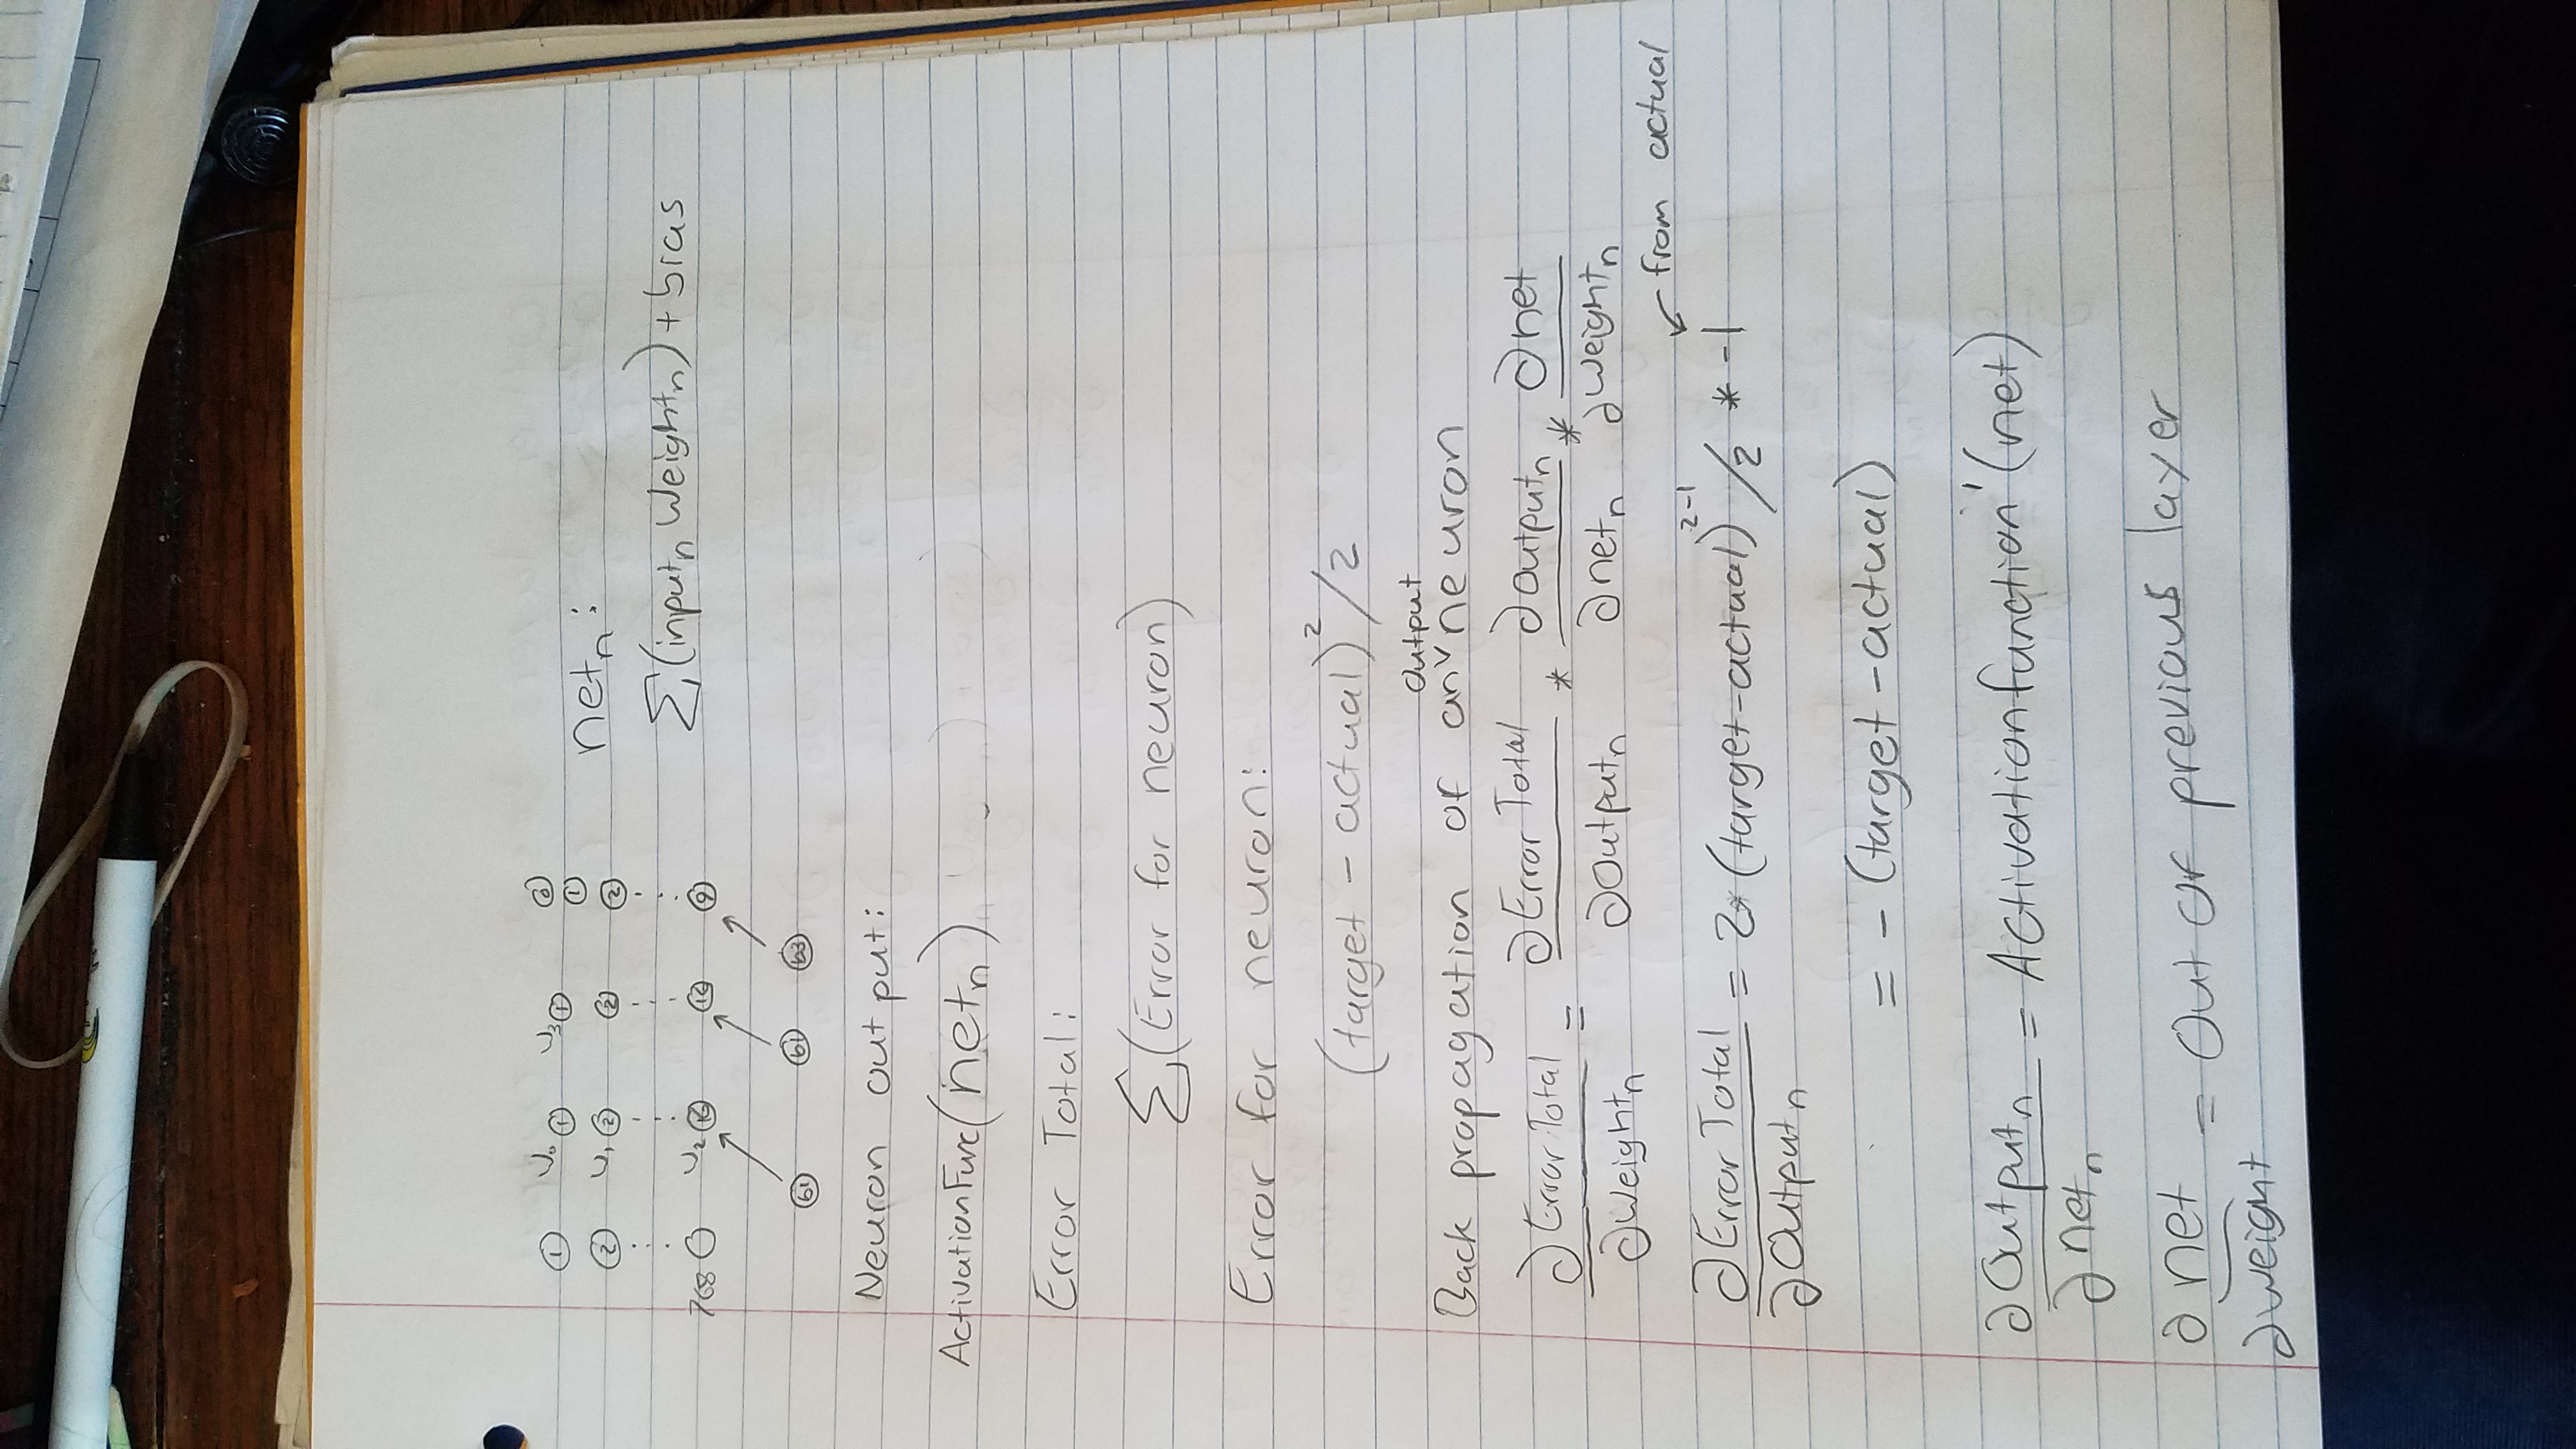 ① w₀ ① w₃ ① ⓪
①
② w₁ ② ② ②
768 w₂ ⑯ ⑯ ⑨
b1 b1 b3
netₙ:
Σ(inputₙ Weightₙ) + bias
Neuron output:
ActivationFunc(netₙ)
Error Total:
Σ(Error for neuron)
Error for neuron:
(target - actual)²/2
Output
Back propagation of an ˅ neuron
∂ErrorTotal/∂Weightₙ = ∂Error Total/∂Outputₙ * ∂Outputₙ/∂netₙ * ∂net/∂weightₙ
from actual
∂Error Total/∂Outputₙ = 2*(target-actual)²⁻¹/2 * -1
= -(target-actual)
∂Outputₙ/∂netₙ = Activationfunction'(net)
∂net/∂weight = Out of previous layer